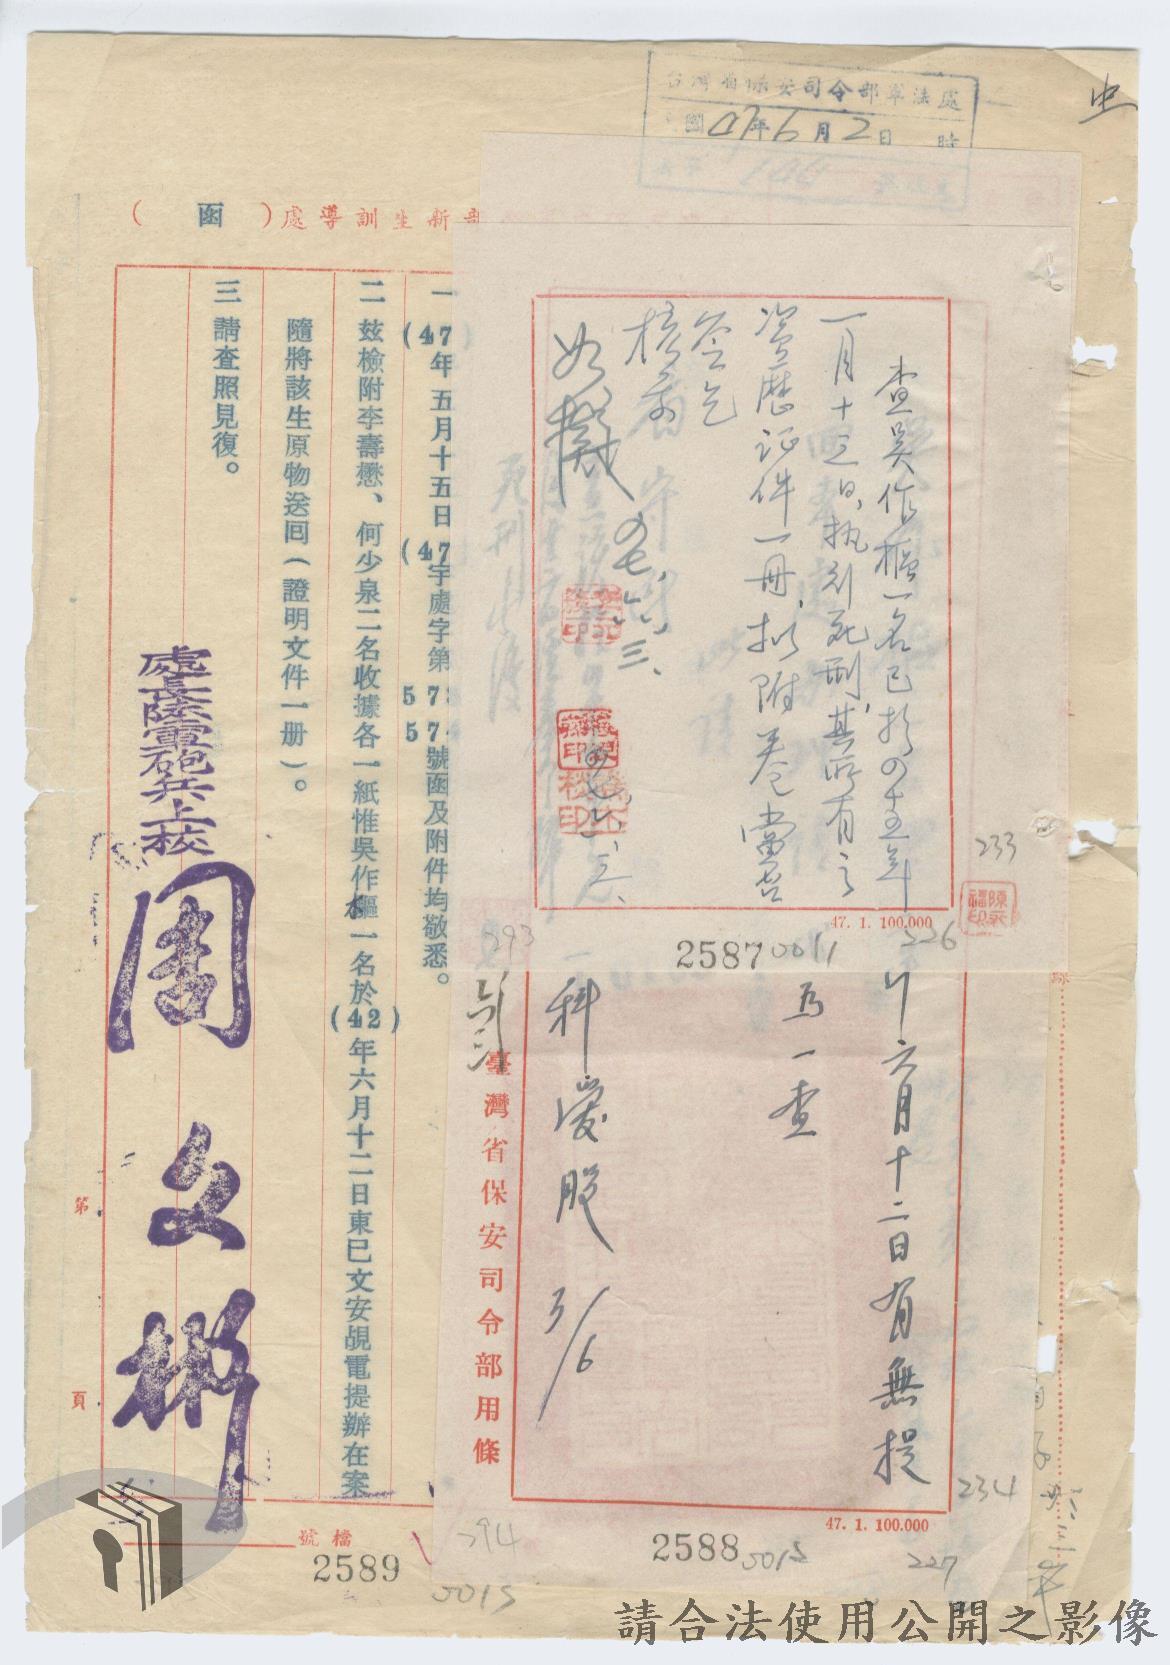 台灣省保安司令部軍法處
國47年6月2日 時
新生訓導處（函）
一
(47)年五月十五日(47)宇處字第573
574號函及附件均敬悉。
二 玆檢附李壽懋、何少泉二名收據各一紙惟吳作樞一名於(42)年六月十二日東巳文安覘電提辦在案
隨將該生原物送囘（證明文件一册）。
三 請查照見復。
處長陸軍砲兵上校周文彬
第 頁
檔號
2589
0015
查吳作樞一名已於四五年
一月十三日執刑死刑，其所有之
資歷証件一冊，擬附卷，當否
簽乞
核示
如擬 四七、六、三、
陳永福印
47. 1. 100.000
233
226
2587
0011
293
六月十二日有無提
為一查
一科
3/6
臺灣省保安司令部用條
47. 1. 100.000
234
227
2588
294
請合法使用公開之影像